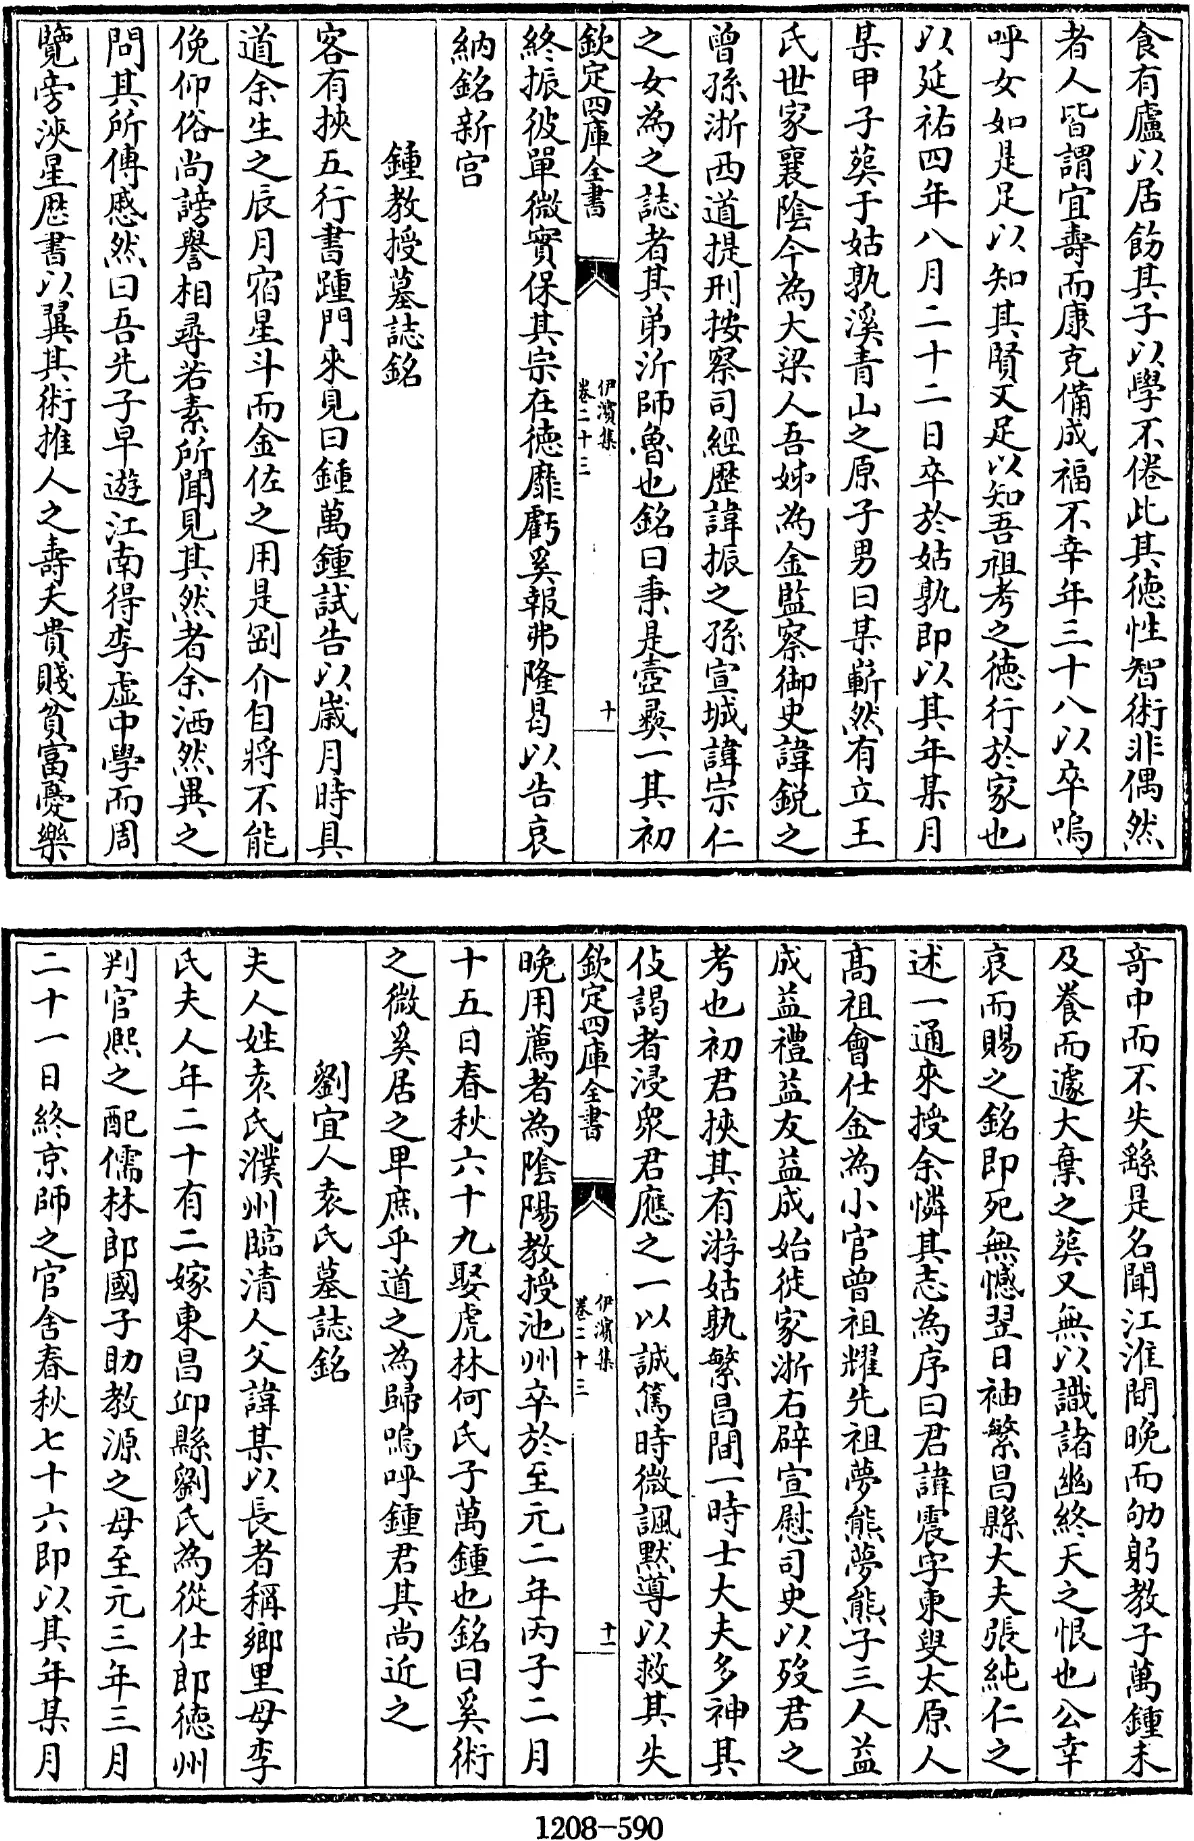 食有廬以居飭其子以學不倦此其徳性智術非偶然
者人皆謂宜壽而康克備成福不幸年三十八以卒嗚
呼女如是足以知其賢又足以知吾祖考之徳行於家也
以延祐四年八月二十二日卒於姑孰即以其年某月
某甲子葬于姑孰溪青山之原子男曰某嶄然有立王
氏世家襄隂今為大梁人吾姊為金監察御史諱鋭之
曾孫浙西道提刑按察司經歴諱振之孫宣城諱宗仁
之女為之誌者其弟沂師魯也銘曰秉是壼彛一其初
欽定四庫全書
伊濱集
卷二十三
十
終振彼單微實保其宗在徳靡虧奚報弗隆曷以告哀
納銘新宫
鍾教授墓誌銘
客有挾五行書踵門來見曰鍾萬鍾試告以嵗月時具
道余生之辰月宿星斗而金佐之用是剛介自將不能
俛仰俗尚謗譽相尋若素所聞見其然者余洒然異之
問其所傳慼然曰吾先子早遊江南得李虚中學而周
覽旁浹星歴書以翼其術推人之壽夭貴賤貧富憂樂
奇中而不失繇是名聞江淮間晚而劬躬教子萬鍾未
及養而遽大棄之葬又無以識諸幽終天之恨也公幸
哀而賜之銘即死無憾翌日袖繁昌縣大夫張純仁之
述一通來授余憐其志為序曰君諱震字東叟太原人
髙祖會仕金為小官曾祖耀先祖夢熊夢熊子三人益
成益禮益友益成始徙家浙右辟宣慰司史以歿君之
考也初君挾其有游姑孰繁昌間一時士大夫多神其
伎謁者浸衆君應之一以誠篤時微諷黙導以救其失
欽定四庫全書
伊濱集
卷二十三
十一
晚用薦者為隂陽教授池州卒於至元二年丙子二月
十五日春秋六十九娶虎林何氏子萬鍾也銘曰奚術
之微奚居之卑庶乎道之為歸嗚呼鍾君其尚近之
劉宜人袁氏墓誌銘
夫人姓袁氏濮州臨清人父諱某以長者稱鄉里母李
氏夫人年二十有二嫁東昌邱縣劉氏為從仕郎徳州
判官熙之配儒林郎國子助教源之母至元三年三月
二十一日終京師之官舍春秋七十六即以其年某月
1208-590